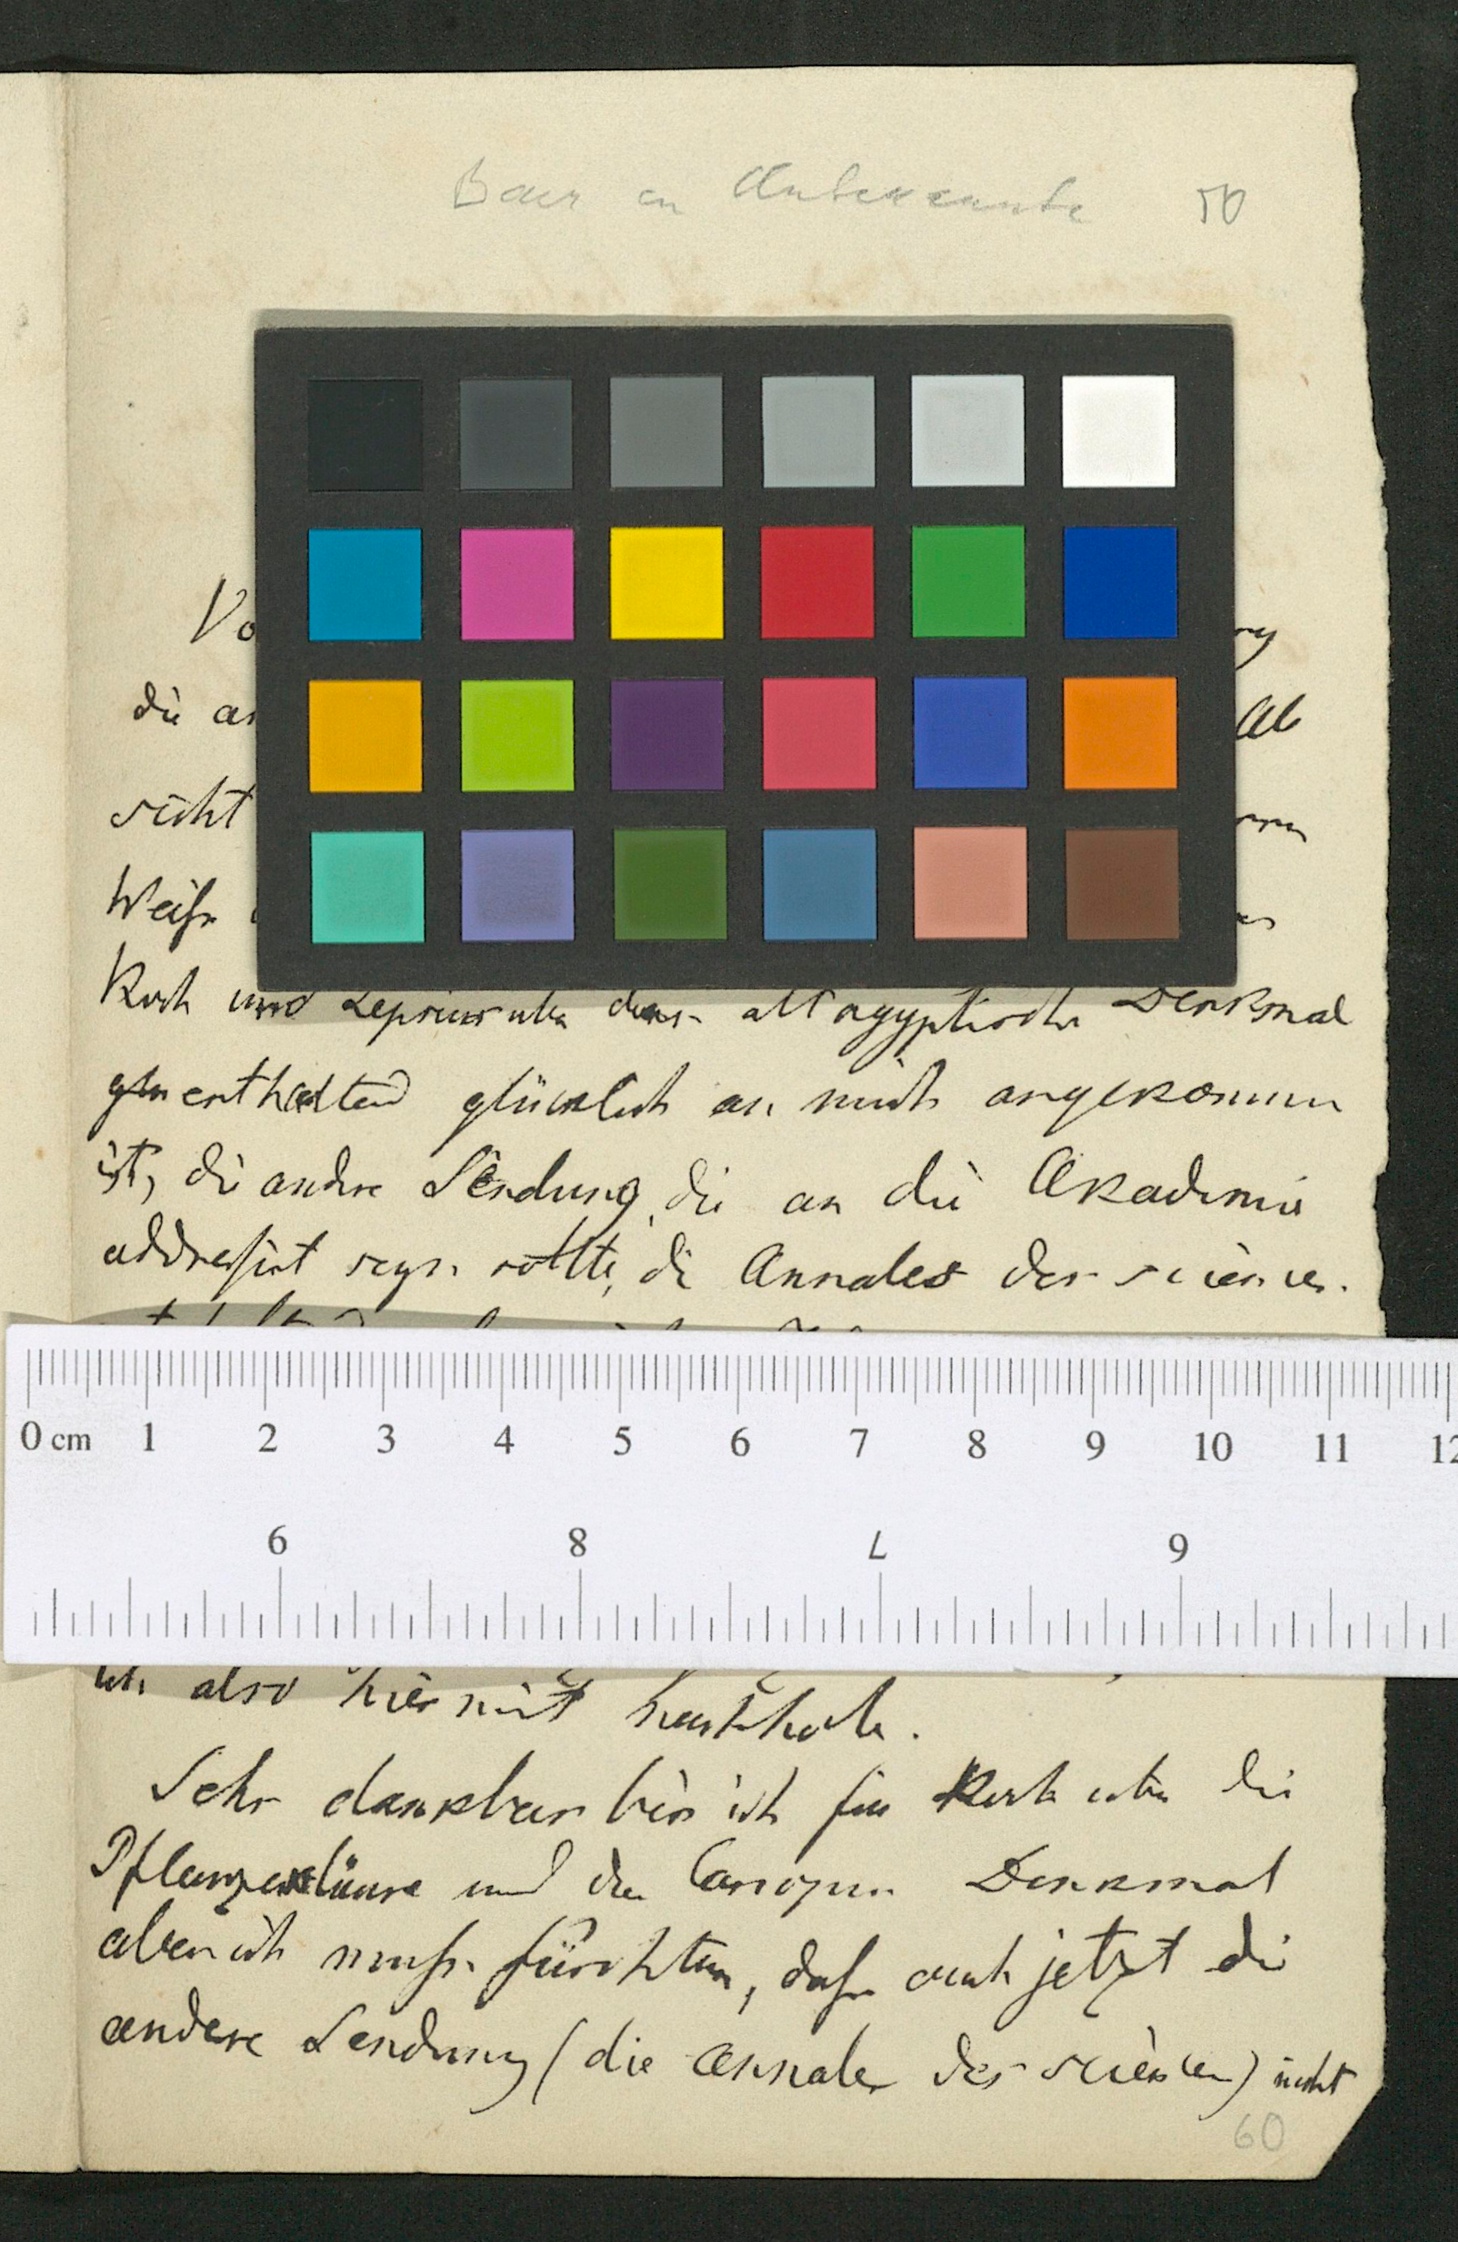 Baer an Unbekannte 50
Vo
die an
Ab
sicht
Weise
Koch und Lepsius über das altägyptische Denkmal
enthaltend glücklich an mich angekommen
ist, die andre Sendung, die an die Akademie
addressirt seyn sollte, die Annales des sciences.
0 cm 1 2 3 4 5 6 7 8 9 10 11 12
6 8 L 9
ich also hiermit nachhole.
Sehr dankbar bin ich für Koch über die
Pflanzenläuse und das Canopus Denkmal
aber ich muß fürchten, daß auch jetzt die
andere Sendung (die Annales des sciences) nicht
60